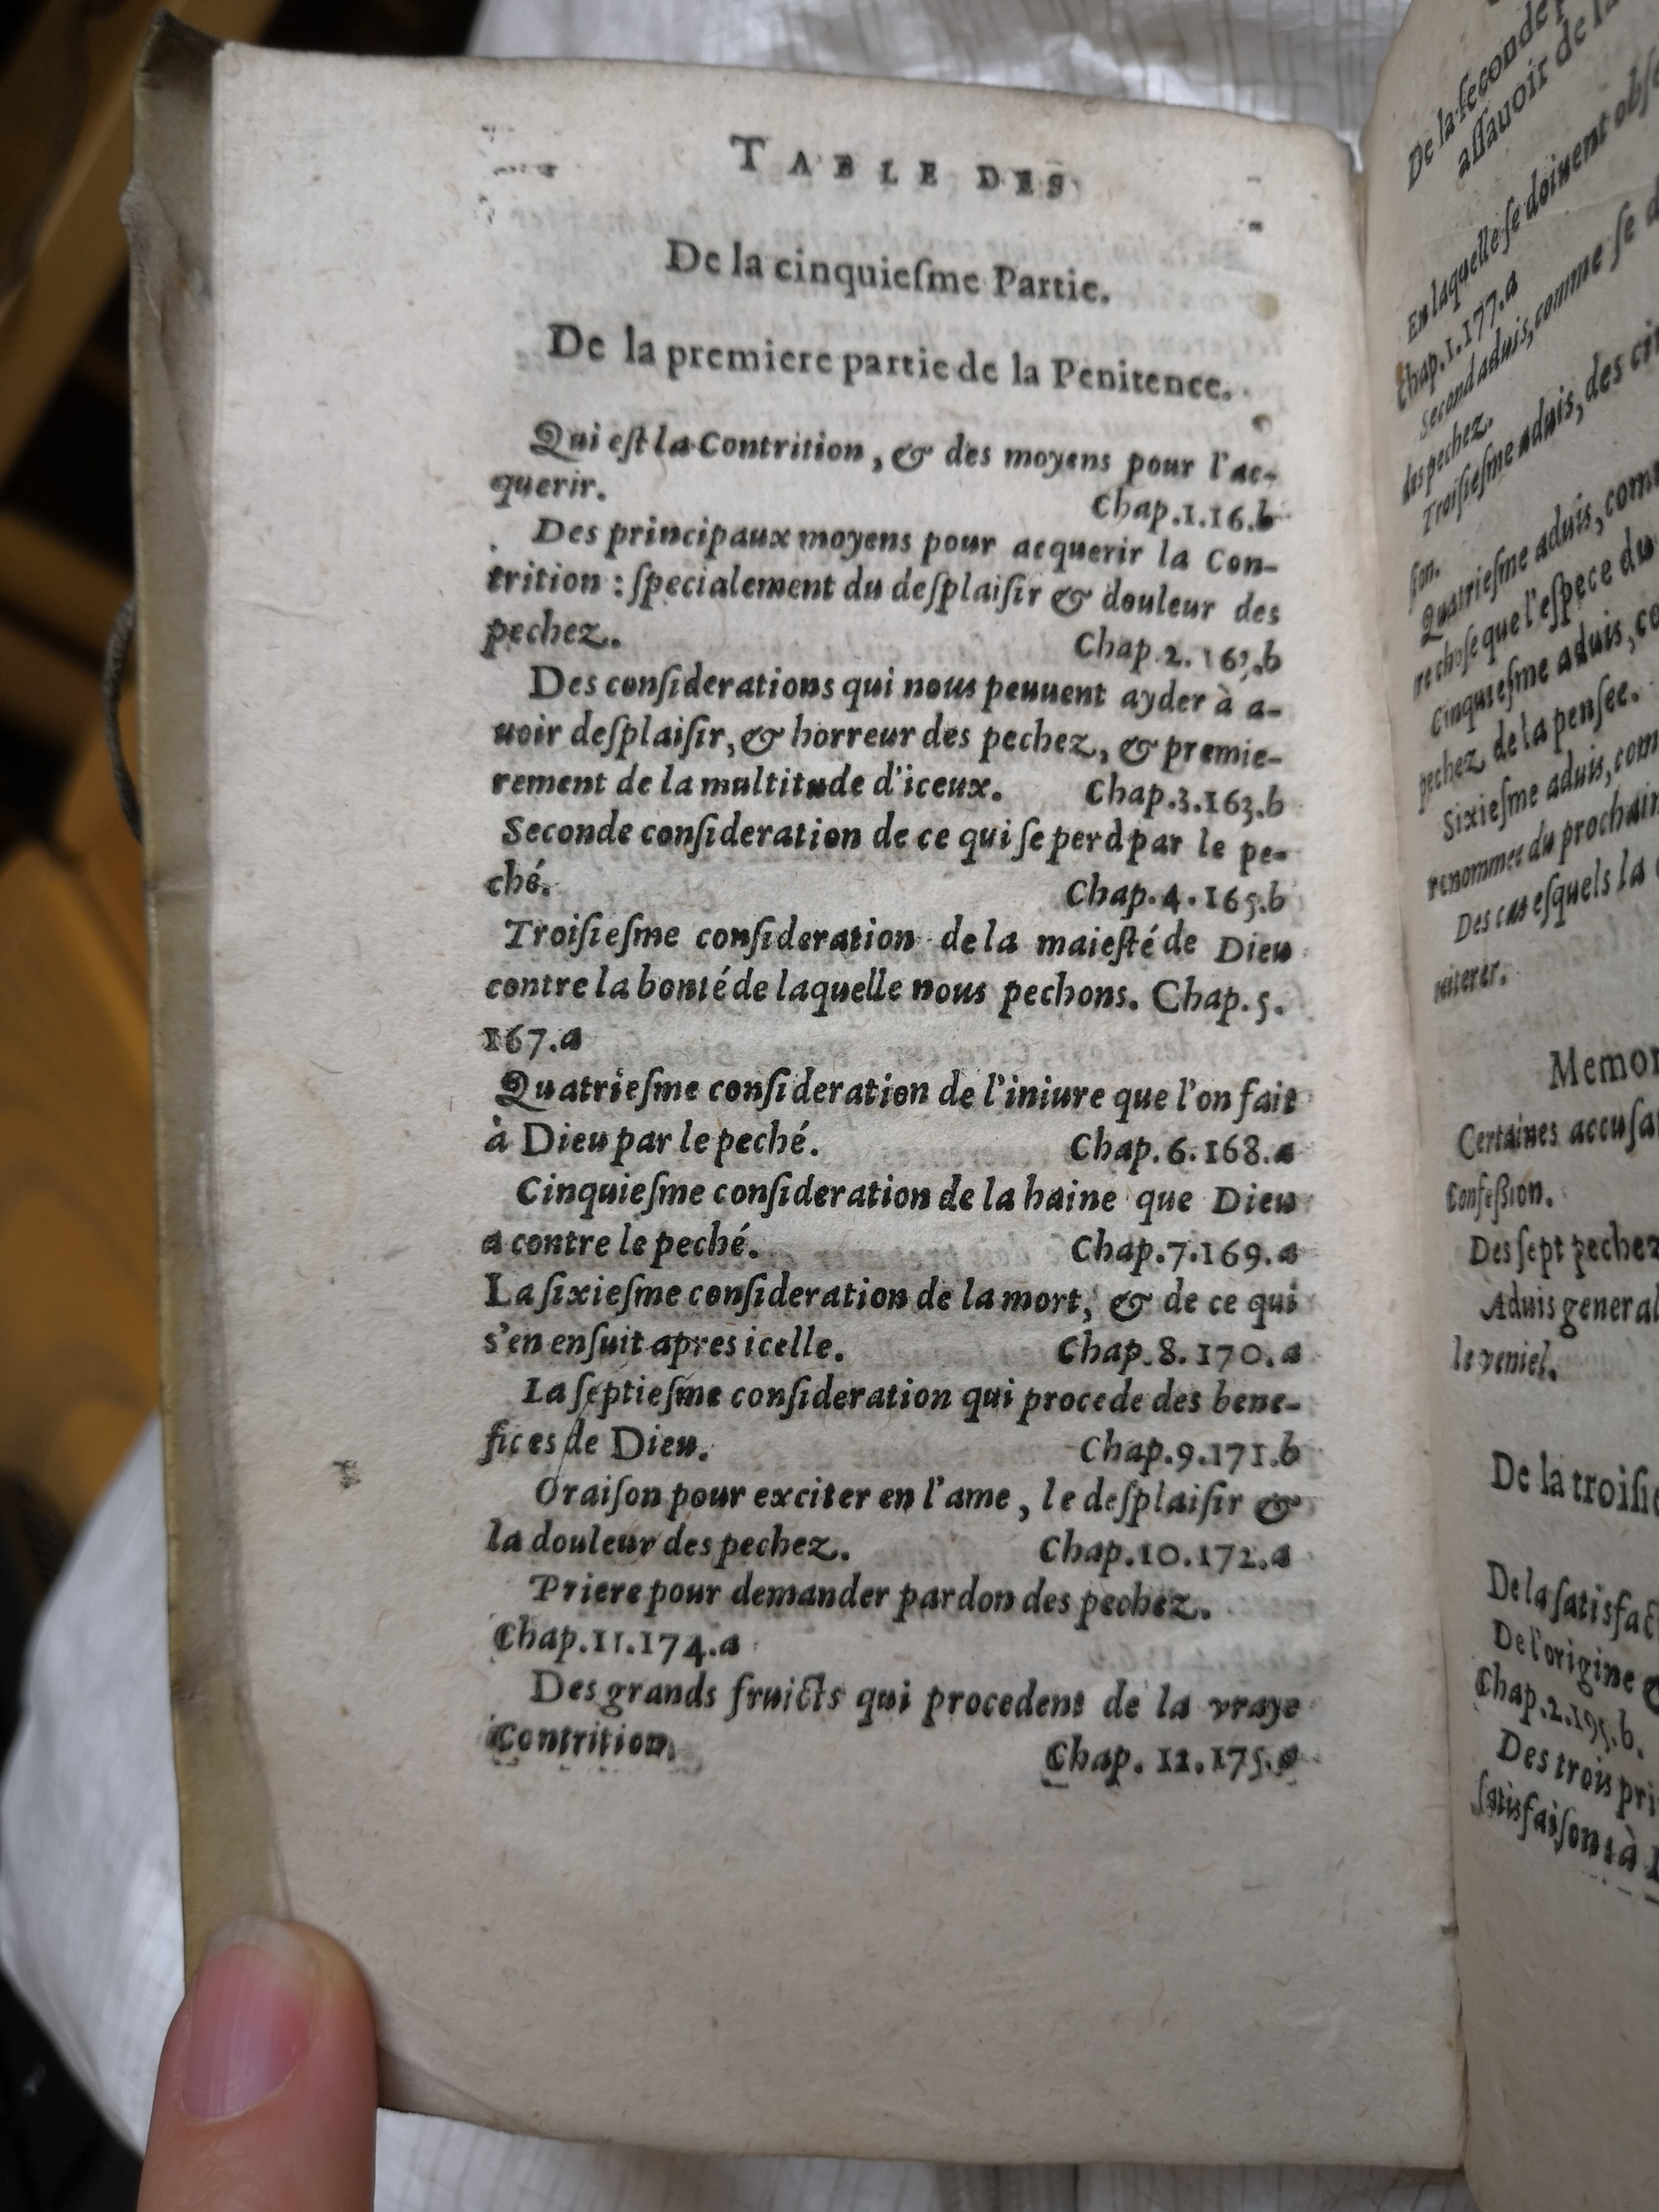 TABLE DES
De la cinquieſme Partie.
De la premiere partie de la Penitence.
Qui eſt la Contrition, & des moyens pour l'ac-
querir. Chap.1.16.b
Des principaux moyens pour acquerir la Con-
trition : ſpecialement du deſplaiſir & douleur des
pechez. Chap.2. b
Des conſiderations qui nous peuuent ayder à a-
uoir deſplaiſir, & horreur des pechez, & premie-
rement de la multitude d'iceux. Chap.3.163.b
Seconde conſideration de ce qui ſe perd par le pe-
ché. Chap.4.165.b
Troiſieſme conſideration de la maieſté de Dieu
contre la bonté de laquelle nous pechons. Chap.5.
167.a
Quatrieſme conſideration de l'iniure que l'on fait
à Dieu par le peché. Chap.6.168.a
Cinquieſme conſideration de la haine que Dieu
a contre le peché. Chap.7.169.a
La ſixieſme conſideration de la mort, & de ce qui
s'en enſuit apres icelle. Chap.8.170.a
La ſeptieſme conſideration qui procede des bene-
fices de Dieu. Chap.9.171.b
Oraiſon pour exciter en l'ame, le deſplaiſir &
la douleur des pechez. Chap.10.172.a
Priere pour demander pardon des pechez.
Chap.11.174.a
Des grands fruicts qui procedent de la vraye
Contrition. Chap. 12.175.a
De la ſeconde
aſſauoir de la
En laquelle ſe doiuent obſe
Chap.1.177.a
Second aduis, comme ſe d
des pechez.
Troiſieſme aduis, des cir
ſion.
Quatrieſme aduis, com
re choſe que l'eſpece du
Cinquieſme aduis, co
pechez de la penſee.
Sixieſme aduis, com
renommee du prochain
Des cas eſquels la
reiterer.
Memor
Certaines accuſa
Confeſſion.
Des ſept pechez
Aduis general
le veniel.
De la troiſie
De la ſatisfac
De l'origine &
Chap.2.195.b.
Des trois pri
ſatisfaiſons à